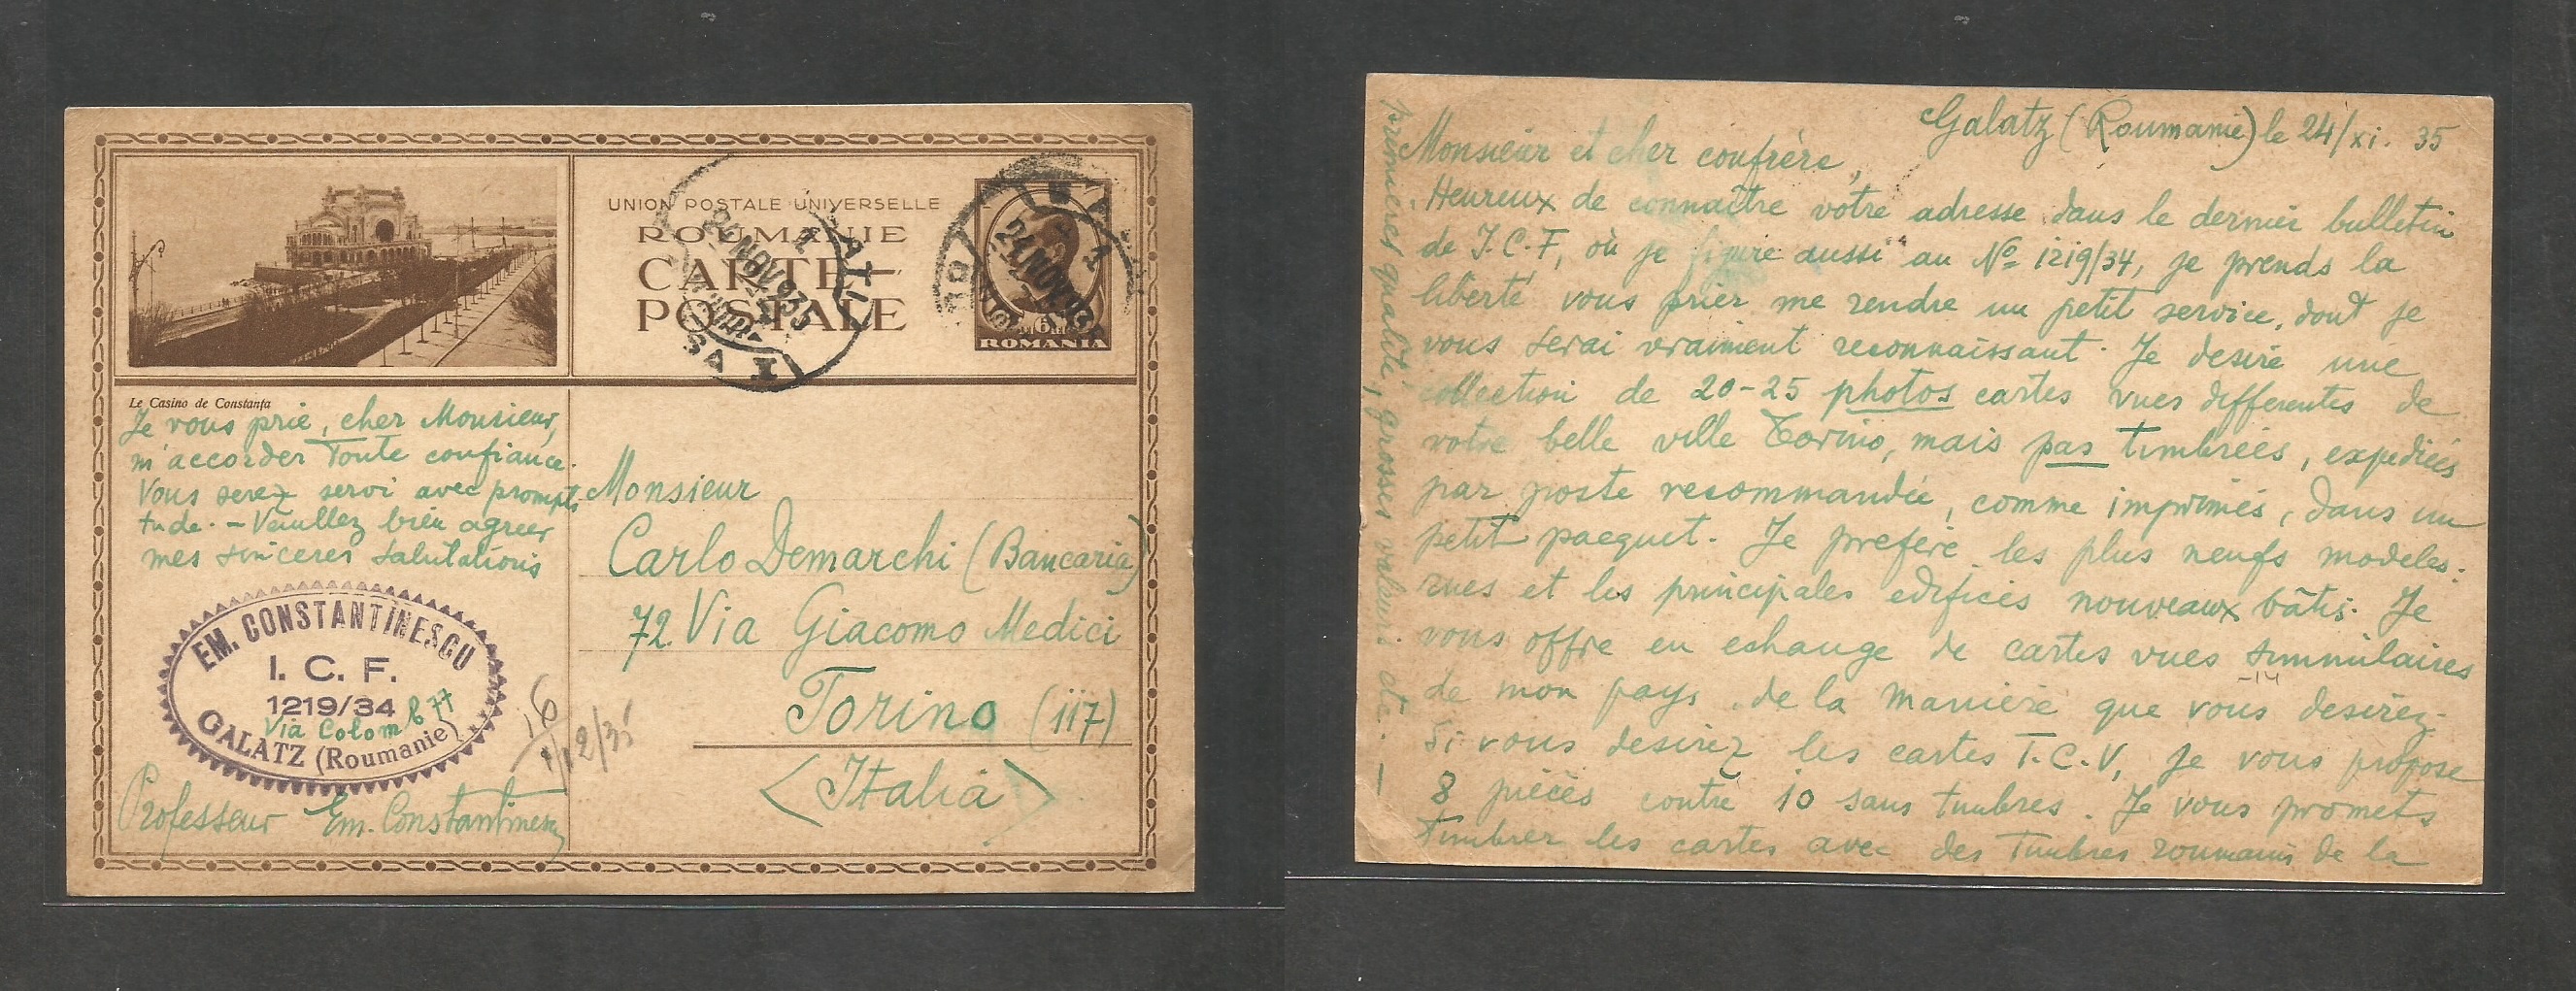 UNION POSTALE UNIVERSELLE
ROUMANIE
CARTE
POSTALE
24 NOV 935
ROMANIA
Le Casino de Constanța
Je vous prie, cher Monsieur,
m'accorder Toute confiance.
Vous serez servi avec prompti
tude. – Veuillez bien agreer
mes sinceres salutations
EM. CONSTANTINESCU
I. C. F.
1219/34
Via Colomb 77
GALATZ (Roumanie)
Professeur Em. Constantinescu
16
1/12/35
Monsieur
Carlo Demarchi (Bancaria)
72. Via Giacomo Medici
Torino (117)
(Italia)
Galatz (Roumanie) le 24/XI. 35
Monsieur et cher confrère,
Heureux de connaître votre adresse dans le dernier bulletin
de I.C.F, où je figure aussi au No 1219/34, je prends la
liberté vous prier me rendre un petit service, dont je
vous serai vraiment reconnaissant. Je desire une
collection de 20-25 photos cartes vues differentes de
votre belle ville Torino, mais pas timbreés, expedieés
par poste recommandée, comme imprimés, dans un
petit pacquet. Je prefére les plus neufs modeles:
rues et les principales edifices nouveaux bâtis. Je
vous offre en echange de cartes vues simmilaires
de mon pays de la maniere que vous desirez.
Si vous desirez les cartes T.C.V, je vous propose
8 piéces contre 10 sans timbres. Je vous promets
timbrer les cartes avec des timbres roumains de la
premieres qualité, grosses valeurs etc. –